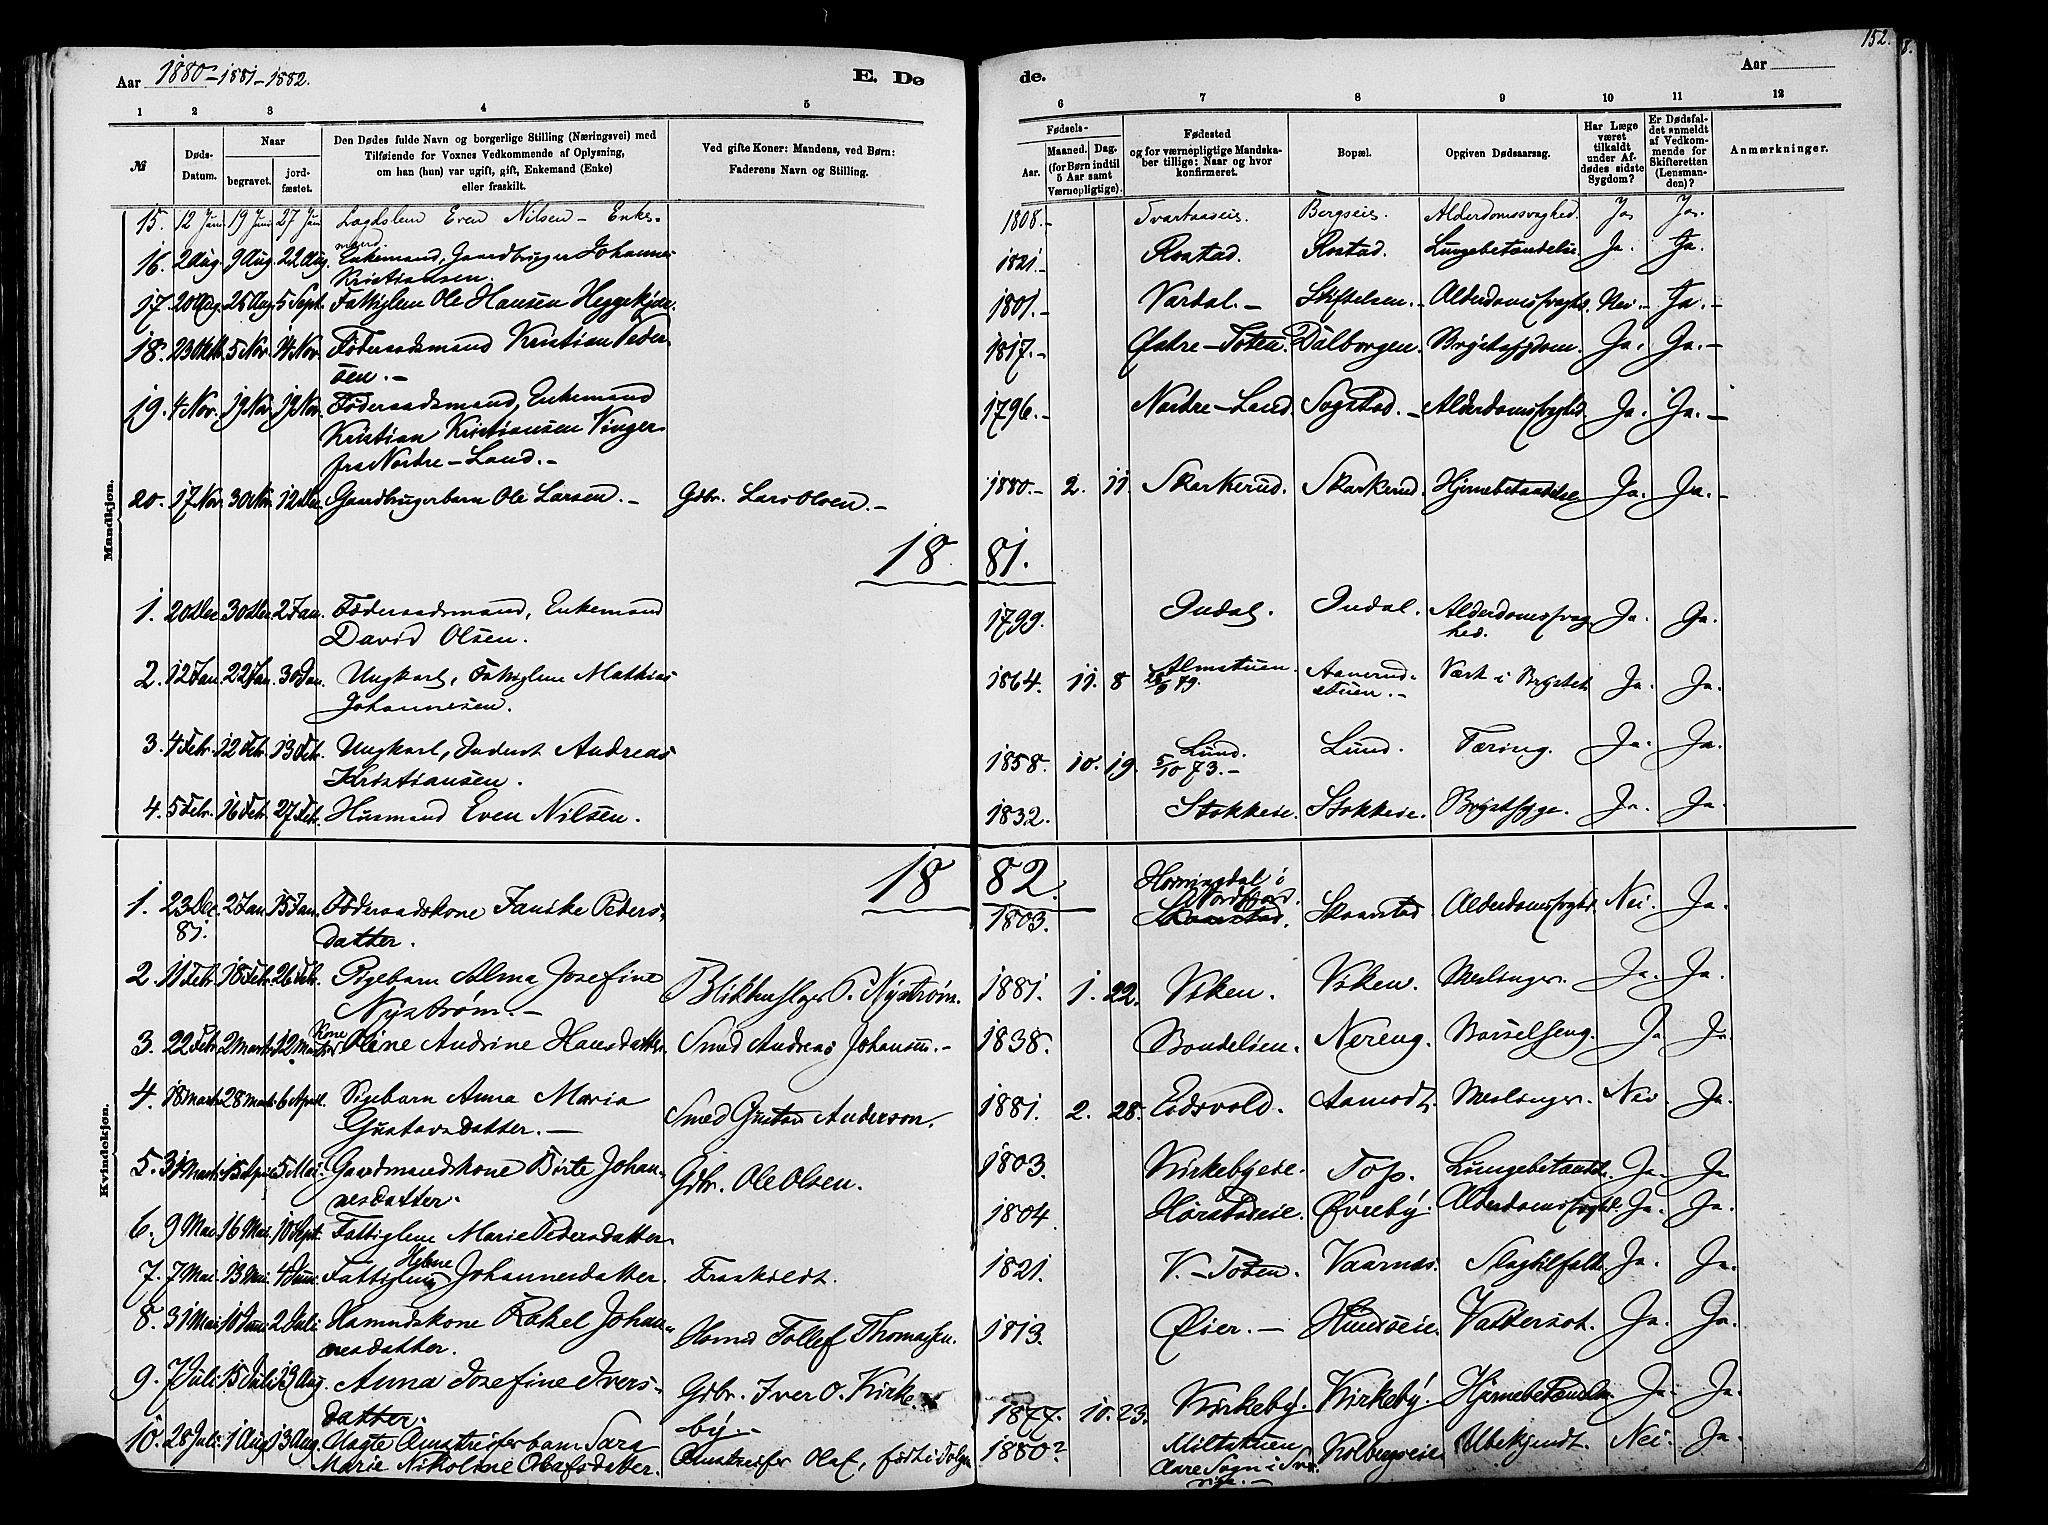 152. 8.
Aar 1880-1881-1882. E. Dø de. Aar
1 2 3 4 5 6 7 8 9 10 11 12
№
Døds-Datum.
Naar
begravet.
jordfæstet.
Den Dødes fulde Navn og borgerlige Stilling (Næringsvei) med
Tilføiende for Voxnes Vedkommende af Oplysning,
om han (hun) var ugift, gift, Enkemand (Enke)
eller fraskilt.
Ved gifte Koner: Mandens, ved Børn:
Faderens Navn og Stilling.
Fødsels-
Aar.
Maaned. Dag.
(for Børn indtil
5 Aar samt
Værnepligtige).
Fødested
og for værnepligtige Mandskaber tillige: Naar og hvor
konfirmeret.
Bopæl.
Opgiven Dødsaarsag.
Har Læge
været
tilkaldt
under Afdødes sidste
Sygdom?
Er Dødsfaldet anmeldt
af Vedkommende for
Skifteretten
(Lensmanden)?
Anmærkninger.
Mandkjøn.
15. 12 Juni 19 Juni 27 Juni Lægdslem Even Nilsen - Enkemand. 1808.- Bergseie. Alderdomssvaghed. Ja. Ja.
16. 2 Aug. 9 Aug. 22 Aug. Enkemand, Gaardbruger Johannes
Kristiansen. 1821.- Rostad. Rostad. Lungebetændelse. Ja. Ja.
17. 20 Aug. 26 Aug. 5 Sept. Fattiglem Ole Hansen 1801.- Vardal.- Stiftelsen.- Alderdomssvaghd. Nei.- Ja.-
18. 23 Oktb. 5 Nov. 14 Nov. Føderaadsmand Kristian Pedersen.- 1817.- Østre-Toten. Dalborgen. Brystsygdom. Ja. Ja.-
19. 4 Nov. 19 Nov. 19 Nov. Føderaadsmand, Enkemand
Kristian Kristiansen Vinger
fra Nordre-Land.- 1796.- Nordre-Land. Sogstad.- Alderdomssvaghd. Ja. Ja.-
20. 17 Nov. 30 Nov. 12 Dec. Gaardbrugerbarn Ole Larsen.- Gdbr. Lars Olsen.- 1880.- 2. 11. Skarkerud. Skarkerud. Hjernebetændelse Ja. Ja.-
1881.
1. 20 Dec 30 Dec 2 Jan. Føderaadsmand, Enkemand
David Olsen. 1799. Indal. Indal. Alderdomssvaghed. Ja. Ja.
2. 12 Jan. 22 Jan. 30 Jan. Ungkarl, Fattiglem Mathias
Johannesen. 1864. 11. 8 Almstuen. 79. Aanerudstuen.- Vært i Brystet. Ja. Ja.
3. 4 Febr. 12 Febr. 13 Febr. Ungkarl, Inderst Andreas
Kristiansen. 1858. 10. 19. Lund. 5/10 73.- Lund. Tæring. Ja. Ja.
4. 5 Febr. 16 Febr. 27 Febr. Husmand Even Nilsen. 1832. Stokkeie. Stokkeie. Brystsyge. Ja. Ja.
Kvindekjøn.
1882
1. 23 Dec. 81. 2 Jan. 15 Jan. Føderaadskone Petersdatter. 1803. Horningdal i
Nordfjord. Skaarstad. Alderdomssvaghd. Nei. Ja.
2. 11 Febr. 18 Febr. 26 Febr. Pigebarn Alma Josefine
Nystrøm.- Blikkenslager P. Nystrøm. 1881. 1. 22. Viken. Viken. Meslinger. Ja. Ja.
3. 22 Febr. 2 Marts 12 Marts Kone Oline Andrine Hansdatter. Smed Andreas Johansen.- 1838. Bondelien. Nereng. Barselseng. Ja Ja.
4. 18 Marts 28 Marts 6 April. Pigebarn Anna Maria
Gustavsdatter.- Smed Gustav Anderson. 1881. 2. 28. Eidsvold. Aamodt. Meslinger. Nei. Ja.
5. 31 Marts 15 April 5 Mai. Gaardmandskone Børte Johannesdatter. Gdbr. Ole Olsen. 1803. Kirkebyeie. Top. Lungebetændt. Ja. Ja
6. 9 Mai 16 Mai. 10 Sept. Fattiglem Marie Pedersdatter. 1804. Øvreby. Alderdomssvaghd. Ja. Ja.
7. 7 Mai. 13 Mai. 4 Juni. Fattiglem Helene Johannesdatter. Fraskildt. 1821. V.-Toten. Vaarnæs. Slagtilfælde. Ja. Ja.
8. 31 Mai 10 Juni 2 Juli Husmdskone Rakel Johannesdatter. Husmd Tollef Thomassen. 1813. Øier.- Hundseie. Vattersot. Ja. Ja.
9. 7 Juli 15 Juli 13 Aug. Anna Josefine Iversdatter. Gdbr. Iver O. Kirkeby.- 1877. 10. 23. Kirkeby. Kirkeby. Hjernebetændelse Ja. Ja.
10. 28 Juli. 1 Aug. 13 Aug. barn Sara
Marie Nikoline Olafsdatter. Olaf, født i 1880? Miltstuen Ubekjendt. Nei. Ja.